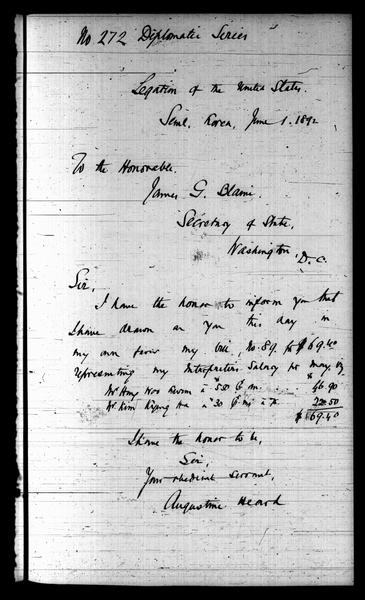 No 272 Diplomatic Series
Legation of the United States.
Seoul, Korea, June 1. 1892
To the Honorable.
James G. Blaine.
Secretary of State,
Washington, D.C.
Sir,
I have the honor to inform you that
I have drawn on you this day in
my own favor my bill, No. 89. for $69.40
representing my Interpreters Salary for May,
Mr. Hong Woo a $50 46.90
Mr. Kim a $30 22.50
$69.40
I have the honor to be,
Sir,
Your obedient servant,
Augustine Heard